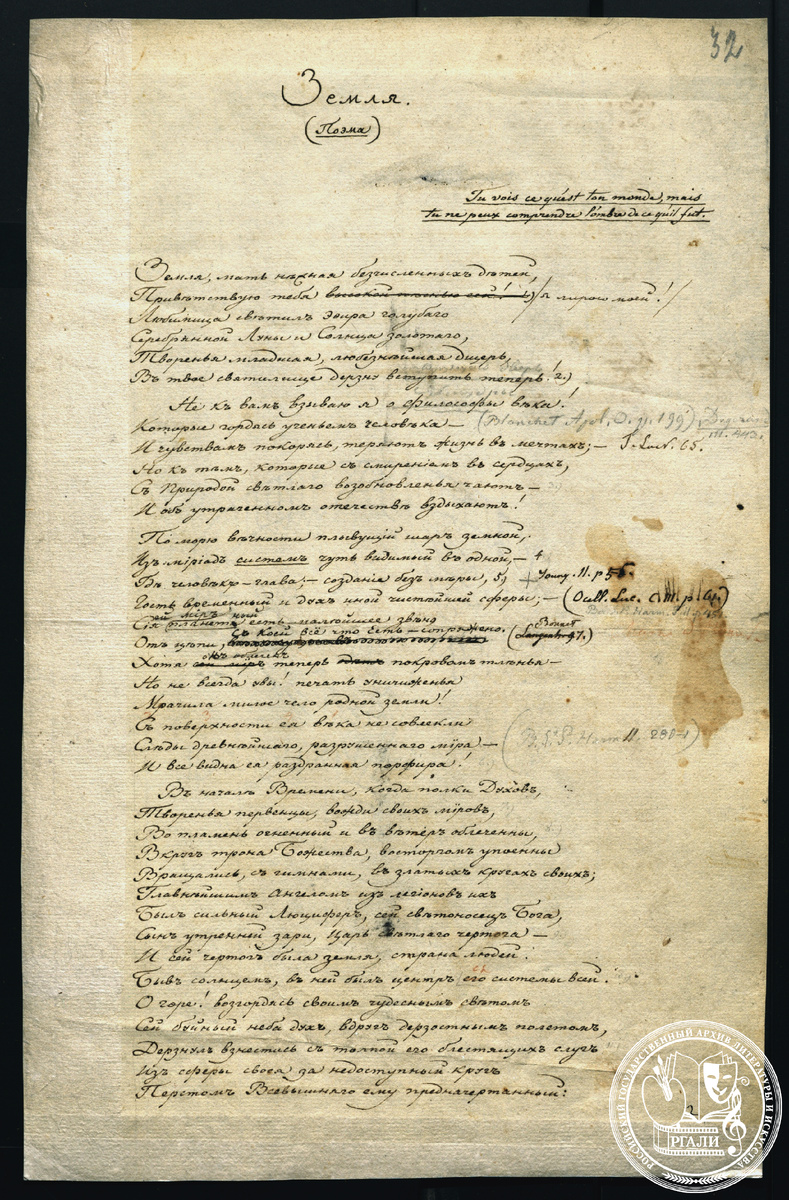 32
Земля.
(Поэма)
Tu vois ce qu'est ton monde, mais
tu ne peux comprendre l'ombre de ce qu'il fut.
Земля, мать нѣжная безчисленныхъ дѣтей,
Привѣтствую тебя я лирою моей!
Любимица свѣтилъ Эѳира голубаго
Серебрянной Луны и Солнца золотаго,
Творенья младшая, любезнѣйшая дщерь,
Въ твое святилище дерзну вступить теперь! 2)
Не къ вамъ взываю я о философы вѣка!
Которые гордясь ученьемъ человѣка — (Blanchet Apl. D. p. 199)
И чувствамъ покорясь, теряютъ жизнь въ мечтахъ; — 65.
Но къ тѣмъ, которые съ смиреніемъ въ сердцахъ,
Съ Природой свѣтлаго возобновленья чаютъ —
И объ утраченномъ отечествѣ вздыхаютъ!
По морю вѣчности плывущій шаръ земной,
Изъ миріадъ системъ чуть видимый въ одной, — 4
Гдѣ человѣкъ — глава; — созданіе безъ мѣры, 5) + Young. II. p 56.
Гость временный и духъ иной чистѣйшей сферы; — (Occll. Luc. C. III. p. 64.)
Сія планета есть малѣйшее звѣно
Отъ цѣпи, съ коей всё что есть — сопряжено. (Bonnet
Хотя теперь покровомъ тлѣнья —
Но не всегда увы! печать уничиженья
Мрачила милое чело родной земли!
Съ поверхности ея вѣка не совлекли
Слѣды древнѣйшаго, разрушеннаго мїра — 280-1)
И все видна ея раздранная порфира!
Въ началѣ Времени, когда полки Духо́въ,
Творенья первенцы, вожди своихъ мїровъ,
Во пламень огненный и въ вѣтеръ облеченны,
Вкругъ трона Божества, восторгомъ упоенны
Вращались, съ гимнами, въ златыхъ кругахъ своихъ;
Главнѣйшимъ Ангеломъ изъ легіоновъ ихъ
Былъ сильный Люциферъ, сей свѣтоносецъ Бога,
Сынъ утренней зари, Царь свѣтлаго чертога —
И сей чертогъ была земля, страна людей!
Бывъ солнцемъ, въ ней былъ центръ его системы всей.
О горе! возгордясь своимъ чудеснымъ свѣтомъ
Сей буйный неба духъ, вдругъ дерзостнымъ полетомъ,
Дерзнулъ взнестись съ толпой его блестящихъ слугъ
Изъ сферы своея за недоступный кругъ
Перстомъ Всевышняго ему предначертанный:
РОССИЙСКИЙ ГОСУДАРСТВЕННЫЙ АРХИВ ЛИТЕРАТУРЫ И ИСКУССТВА
РГАЛИ